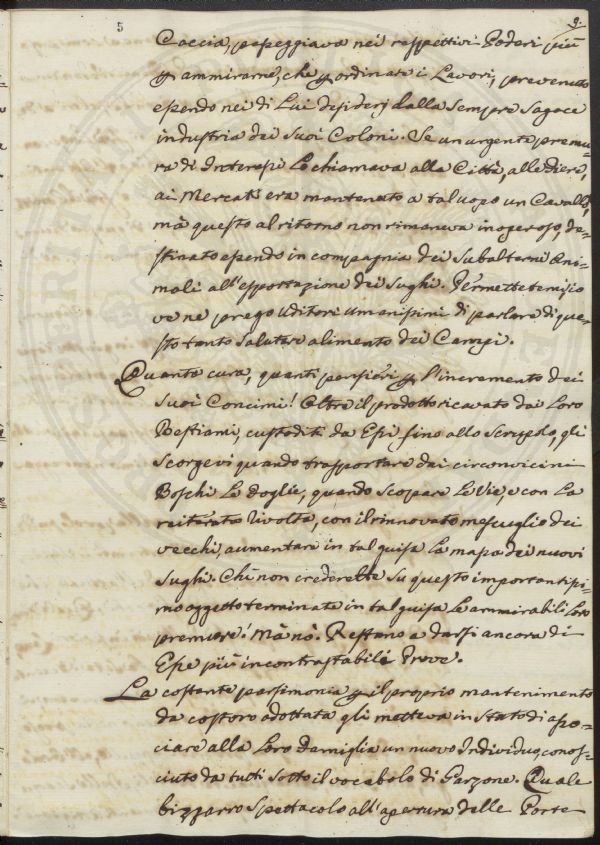 5
9.
Caccia, passeggiava nei rispettivi Poderi più
p ammirarne, che p ordinare i Lavori, prevenuto
essendo nei di Lui desiderj dalla sempre sagace
industria dei suoi Coloni. Se un urgente premu=
ra di Interessi Lo chiamava alla Città, alle Fiere,
ai Mercati era mantenuto a tal uopo un Cavallo,
mà questo al ritorno non rimaneva inoperoso, de=
stinato essendo in compagnia dei subalterni Ani=
mali all'esportazione dei Sughi. Permettetemi, io
ve ne prego Uditori Umanissimi di parlare di que=
sto tanto salutare alimento dei Campi.
Quante cure, quanti pensieri p l'incremento dei
suoi Concimi! Oltre il prodotto ricavato dai Loro
Bestiami, custoditi da Essi fino allo scrupolo, gli
scorgevi quando trasportare dai circonvicini
Boschi Le foglie, quando scopare Le Vie, e con La
reiterata rivolta, con il rinnovato mescuglio dei
vecchi, aumentare in tal guisa La massa dei nuovi
sughi. Chi non crederebbe su questo importantissi=
mo oggetto terminate in tal guisa Le ammirabili Loro
premure! Mà nò. Restano a darsi ancora di
Esse più incontrastabili Prove.
La costante parsimonia p il proprio mantenimento
da costoro adottata gli metteva in stato di asso=
ciare alla Loro Famiglia un nuovo Individuo, conos=
ciuto da tutti sotto il vocabolo di Garzone. Quale
bizzarro spettacolo all'apertura delle Porte